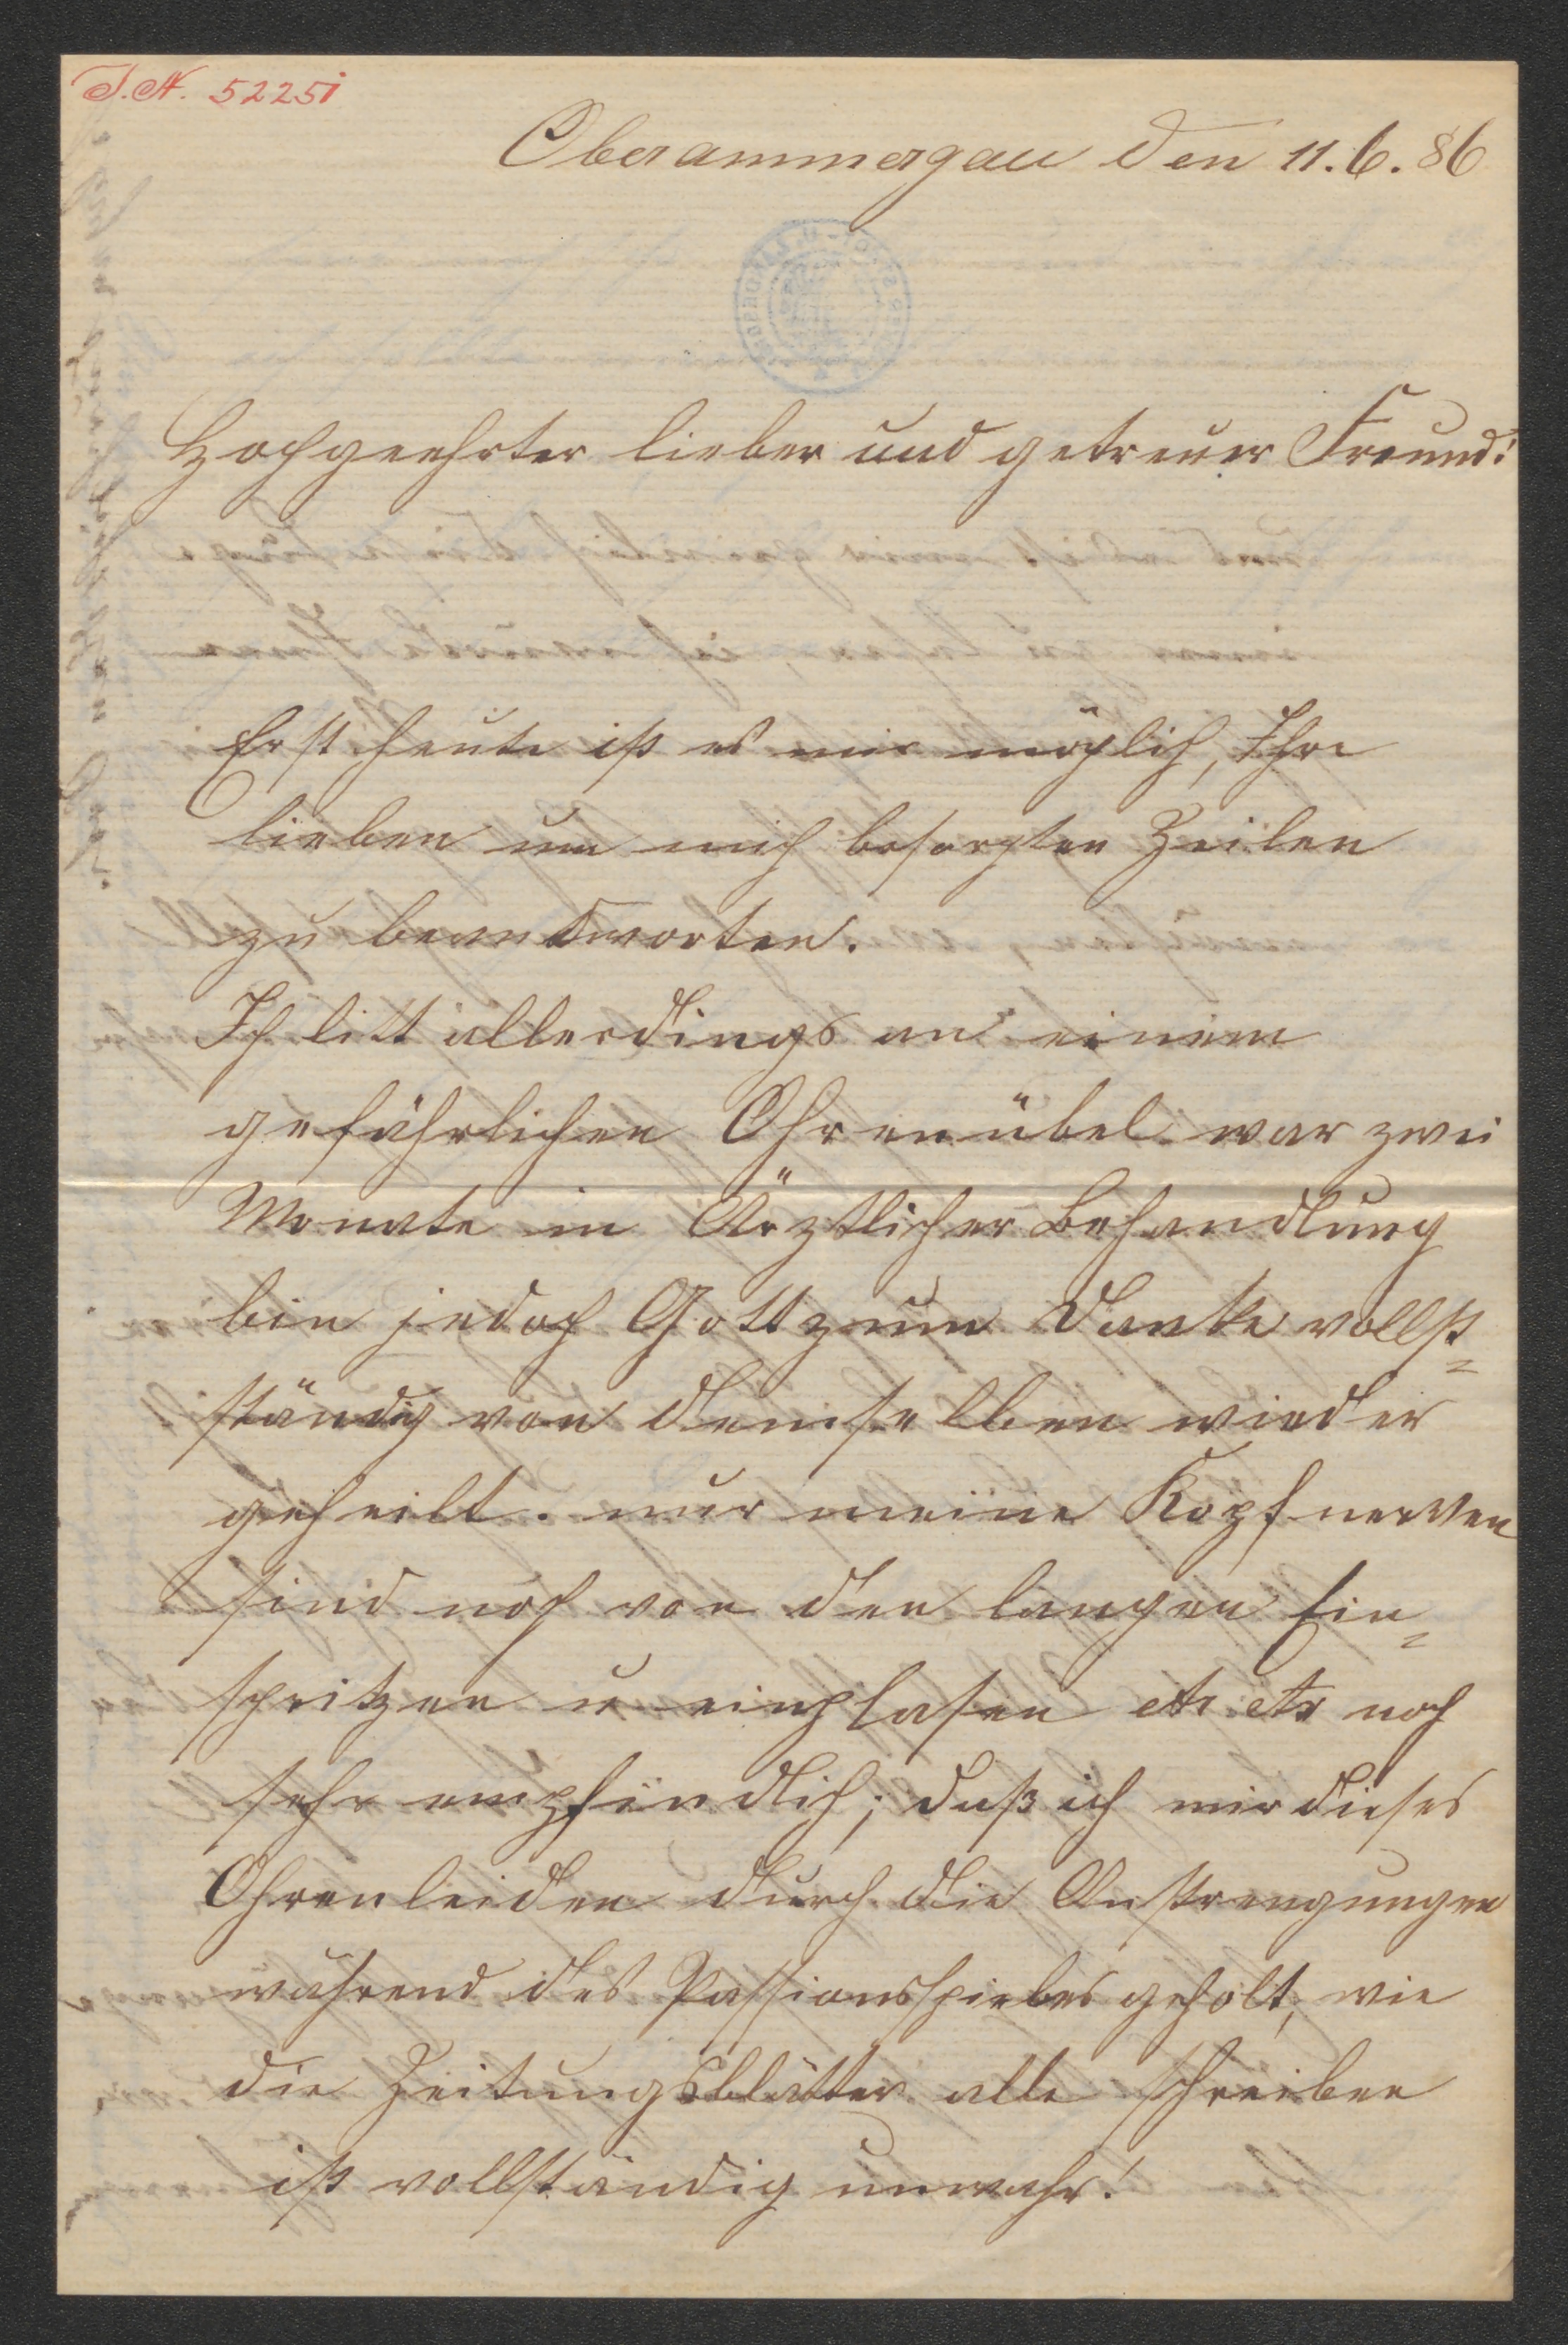 I.N. 52251
Oberammergau den 11.6.86
Hochgeehrter lieber und getreuer Freund!
Erst heute ist es mir möglich, Ihre
lieben um mich besorgten Zeilen
zu beantworten.
Ich litt allerdings an einem
gefährlichen Ohrenübel war zwei
Monate in Ärztlicher Behandlung
bin jedoch Gott zum Danke vollst=
ständig von demselben wieder
geheilt. nur meine Kopfnerven
sind noch von den langen Ein=
spritzen u einblasen etc etc noch
sehr empfindlich; daß ich mir dieses
Ohrenleiden durch die Anstrengungen
während des Passionsspieles geholt, wie
die Zeitungsblätter alle schreiben
ist vollständig unwahr!